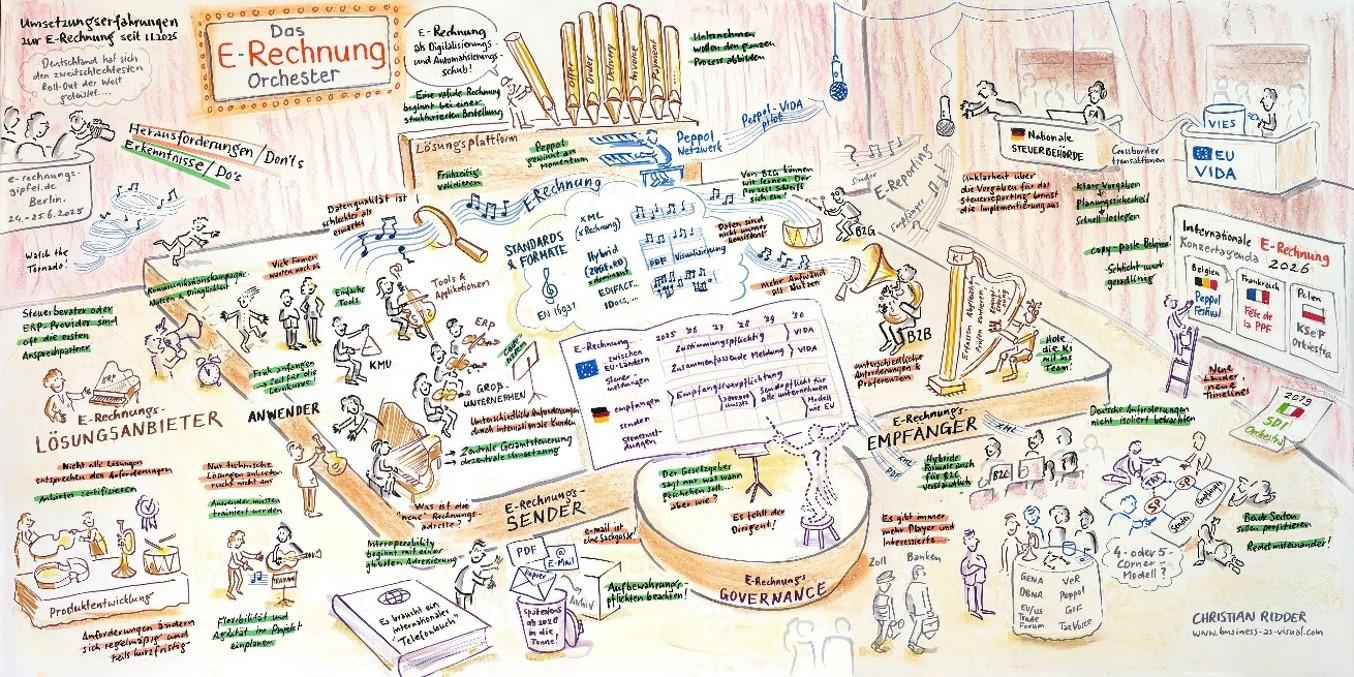 Umsetzungserfahrungen
zur E-Rechnung seit 11.2025
Deutschland hat sich
den zweitschlechtesten
Roll-Out der Welt
geleistet....
Das
E-Rechnung
Orchester
E-Rechnung
als Digitalisierungs-
und Automatisierungs-
schub!
Eine valide Rechnung
beginnt bei einer
strukturierten Bestellung
Offer
Order
Delivery
Invoice
Payment
Unternehmen
wollen den ganzen
Prozess abbilden
Lösungsplattform
Peppol
gewinnt an
momentum
Peppol
Netzwerk
Peppol-VIDA
pilot
Frühzeitig
validieren
Herausforderungen/Don'ts
Erkenntnisse/Do's
e-rechnungs-
gipfel.de
Berlin.
24.-25.6.2025
Watch the
Tornado!
Nationale
STEUERBEHÖRDE
Crossborder
transaktionen
VIES
EU
VIDA
E-Reporting
Sender
Empfänger
Unklarheit über
die Vorgaben für das
Steuerreporting bremst
die Implementierung aus
Klare Vorgaben
Planungssicherheit
Schnell loslegen
Copy-paste Belgien
Schlicht und
geradlinig
Internationale E-Rechnung
Konzertagenda 2026
Belgien
Peppol
Festival
Frankreich
Fête de
la PPF
Polen
KSeF
Orkiestra
Neue
Länder
neue
Timelines
2019
SDI
Orchestra
Datenqualität ist
schlechter als
erwartet
E-Rechnung
STANDARDS
& FORMATE
EN 16931
XML
(XRechnung)
Hybrid
(ZUGFeRD)
dominant
EDIFACT..
IDoc...
PDF Visualisierung
Von B2G können
wir lernen. Der
Prozess schleift
sich ein!
Daten sind
nicht immer
konsistent
B2G
mehr Aufwand
als Nutzen
B2B
unterschiedliche
Anforderungen &
Präferenzen
KI
Hole
die KI
mit ins
Team!
Kommunikationskampagne
Nutzen & Dringlichkeit
Viele Firmen
warten noch ab
Einfache
Tools
Tools &
Applikationen
ERP
KMU
GROß-
UNTERNEHMEN
Früh anfangen
→ Zeit für die
Lernkurve
ANWENDER
Unterschiedliche Anforderungen
durch internationale Kunden
→ Zentrale Gesamtsteuerung
→ dezentrale Umsetzung
Steuerberater oder
ERP-Provider sind
oft die ersten
Ansprechpartner
E-Rechnungs-
LÖSUNGSANBIETER
E-Rechnung...
2025 '26 '27 '28 '29 '30
zwischen
EU-Ländern
Steuer-
meldungen
Zustimmungspflichtig
VIDA
Zusammenfassende Meldung
VIDA
empfangen
Empfangsverpflichtung
senden
Sendepflicht für
alle unternehmen
Steuermel-
dungen
Modell
wie EU
E-Rechnungs-
EMPFÄNGER
XML
Hybride
Formate auch
für B2C
verständlich
B2C
Deutsche Anforderungen
nicht isoliert betrachten
TAX
SP
SP
Sender
Empfänger
4- oder 5-
Corner-
Modell?
Beide Seiten
sollen profitieren
Redet miteinander!
Nicht alle Lösungen
entsprechen den Anforderungen
Anbieter zertifizieren
Nur technische
Lösungen anbieten
reicht nicht aus
Anwender müssen
trainiert werden
Produktentwicklung
Anforderungen ändern
sich regelmäßig und
teils kurzfristig
Flexibilität und
Agilität im Projekt
einplanen
Was ist die
"neue" Rechnungs-
adresse?
E-Rechnungs-
SENDER
Interoperabilität
beginnt mit einer
globalen Adressierung
Es braucht ein
internationales
"Telefonbuch"
PDF
@
E-Mail
Papier
Spätestens
ab 2028
in die
Tonne!
e-mail ist
eine Sackgasse
Archiv
Aufbewahrungs-
pflichten beachten!
Der Gesetzgeber
sagt nur was wann
geschehen soll...
aber wie?
?
Es fehlt der
Dirigent!
E-Rechnungs-
GOVERNANCE
Es gibt immer
mehr Player und
Interessierte
Zoll
Banken
GENA
DBNA
EU/US
Trade
Forum
VeR
Peppol
GIF
TaxVoice
CHRISTIAN RIDDER
www.business-as-visual.com